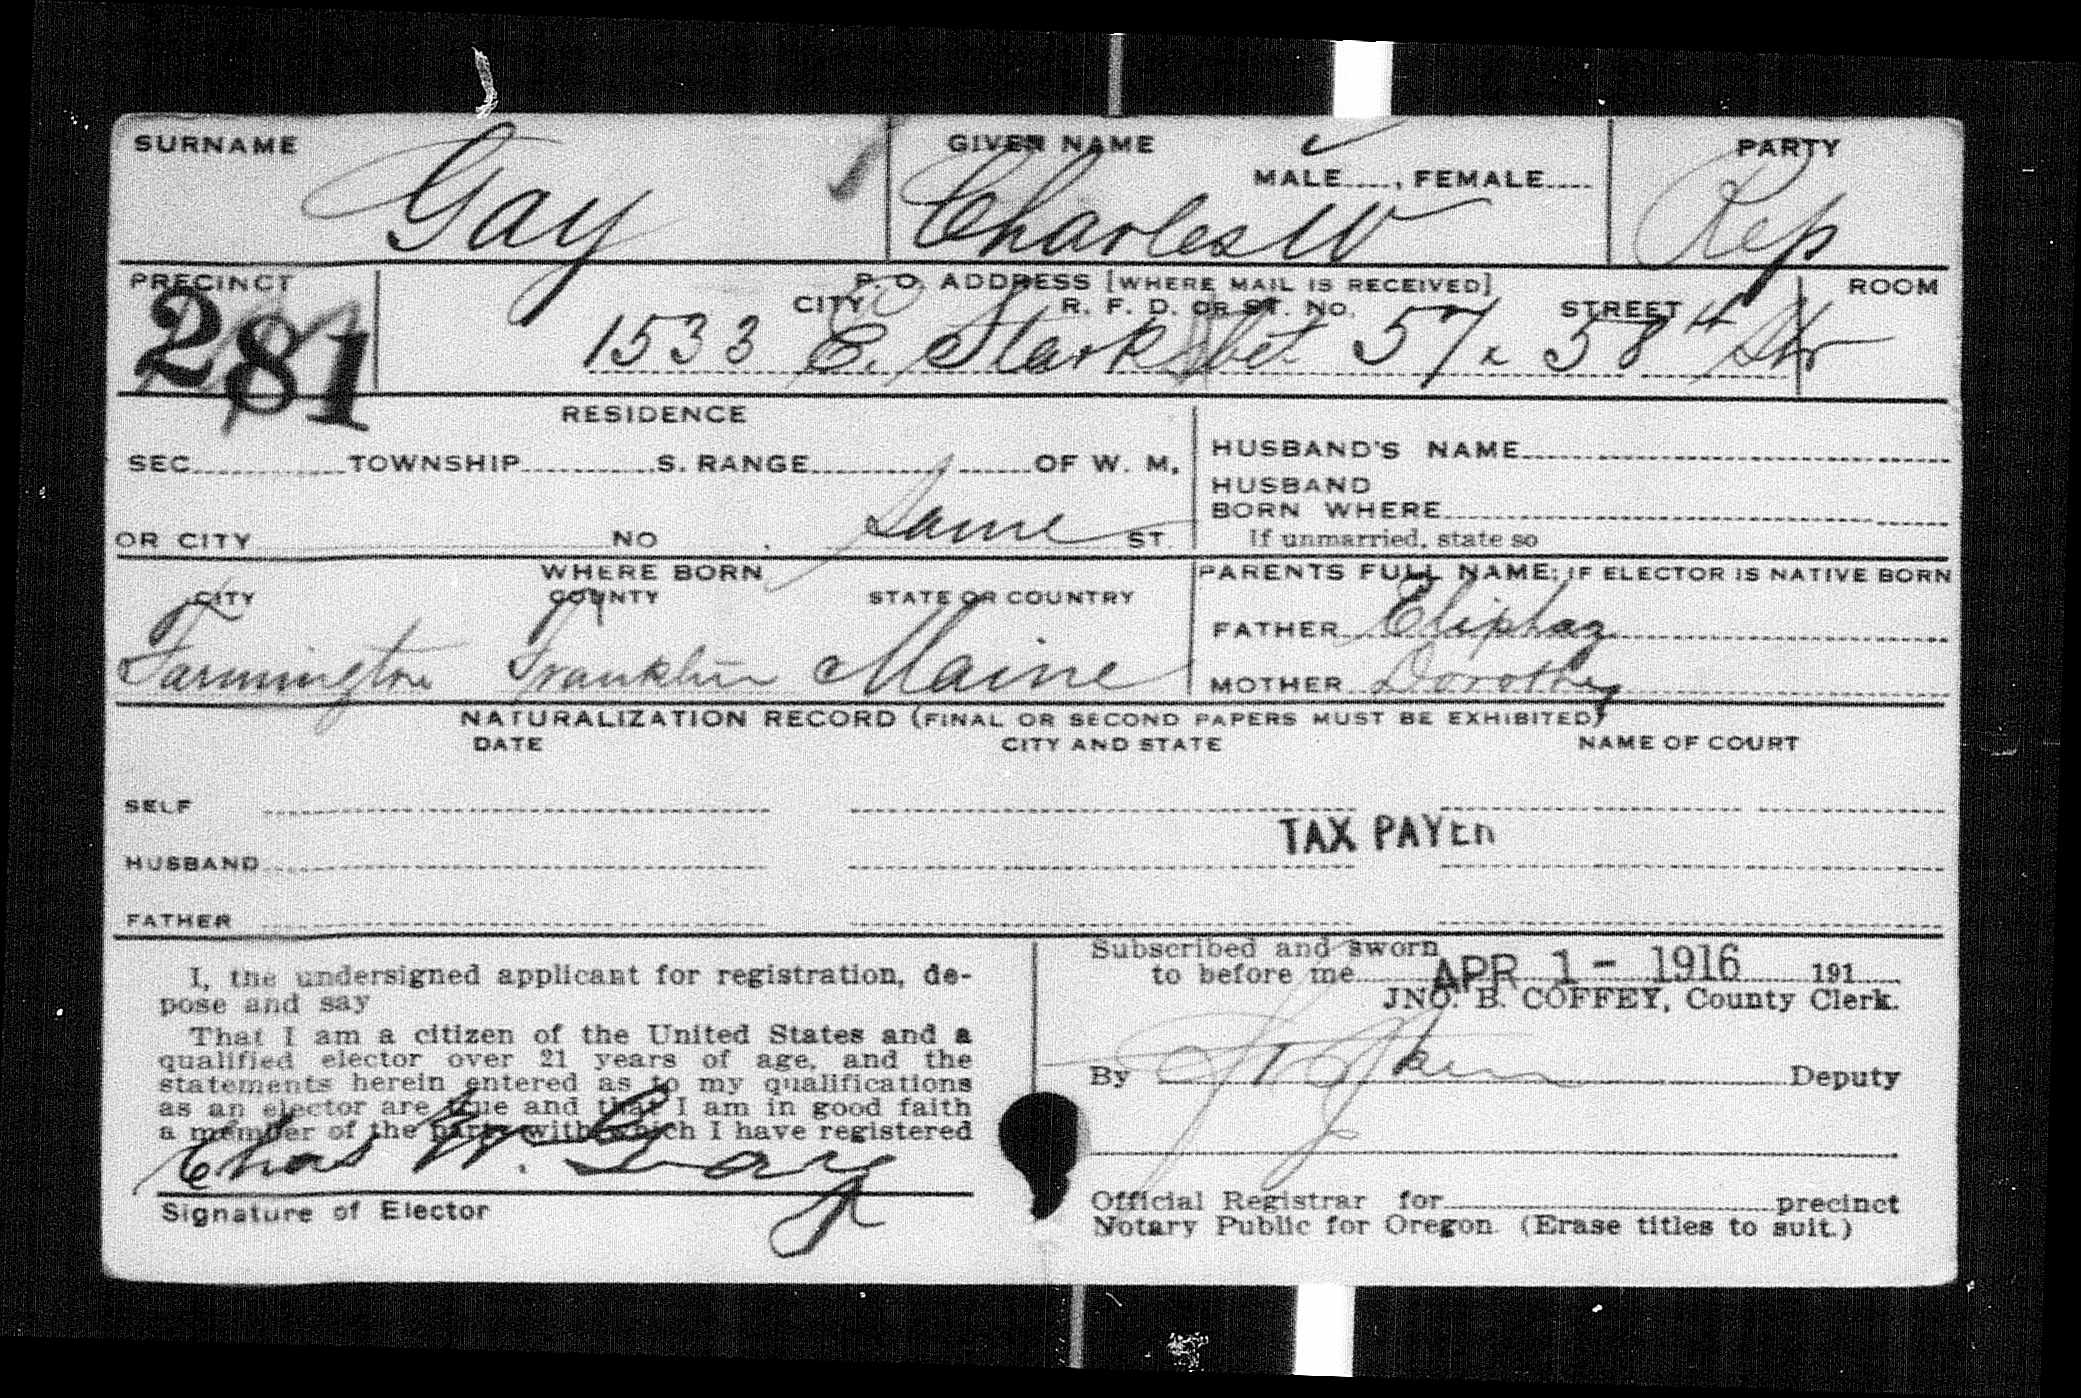 SURNAME GIVEN NAME PARTY
MALE....., FEMALE.....
Gay Charles W Rep
PRECINCT P. O. ADDRESS [WHERE MAIL IS RECEIVED] ROOM
CITY R. F. D. OR ST. NO. STREET
281 1533 E. Stark bet 57 & 58th Str
RESIDENCE
SEC. TOWNSHIP S. RANGE OF W. M.
HUSBAND'S NAME
HUSBAND
BORN WHERE
OR CITY NO Same ST.
If unmarried, state so
WHERE BORN PARENTS FULL NAME: IF ELECTOR IS NATIVE BORN
CITY COUNTY STATE OR COUNTRY
FATHER Eliphaz
Farmington Franklin Maine
MOTHER Dorothy
NATURALIZATION RECORD (FINAL OR SECOND PAPERS MUST BE EXHIBITED)
DATE CITY AND STATE NAME OF COURT
SELF
TAX PAYER
HUSBAND
FATHER
I, the undersigned applicant for registration, de-
pose and say
That I am a citizen of the United States and a
qualified elector over 21 years of age, and the
statements herein entered as to my qualifications
as an elector are true and that I am in good faith
a member of the party with which I have registered
Chas W. Gay
Signature of Elector
Subscribed and sworn
to before me APR 1 - 1916 191
JNO. B. COFFEY, County Clerk.
By Deputy
Official Registrar for precinct
Notary Public for Oregon. (Erase titles to suit.)